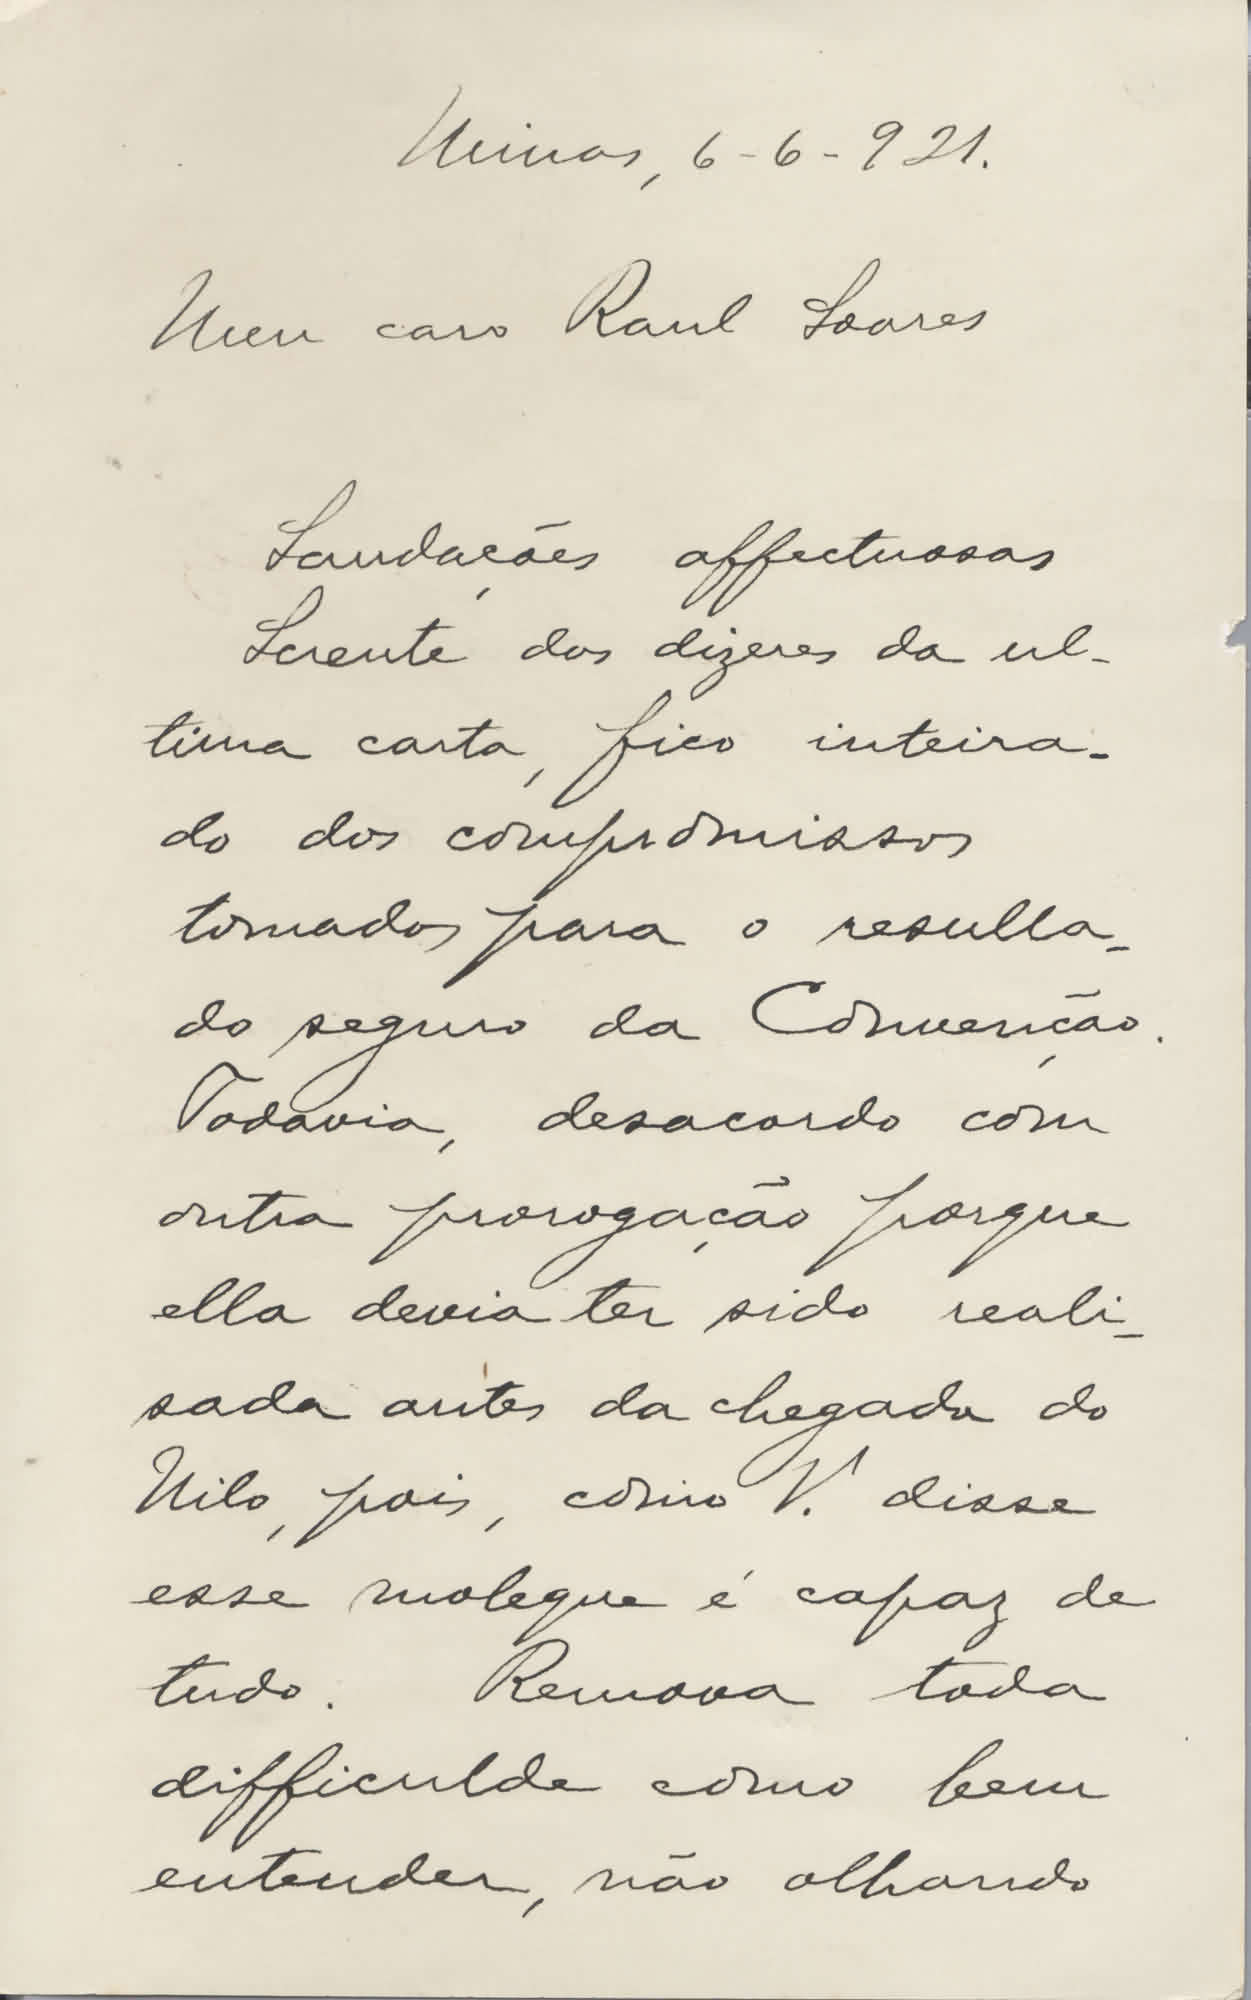 Minas, 6-6-921.
Meu caro Raul Soares
Saudações affectuosas
Sciente dos dizeres da ul-
tima carta, fico inteira-
do dos compromissos
tomados para o resulta-
do seguro da Convenção.
Todavia, desacordo com
outra prorogação porque
ella devia ter sido reali-
sada antes da chegada do
Nilo, pois, como V. disse
esse moleque é capaz de
tudo. Remova toda
difficulde como bem
entender, não olhando